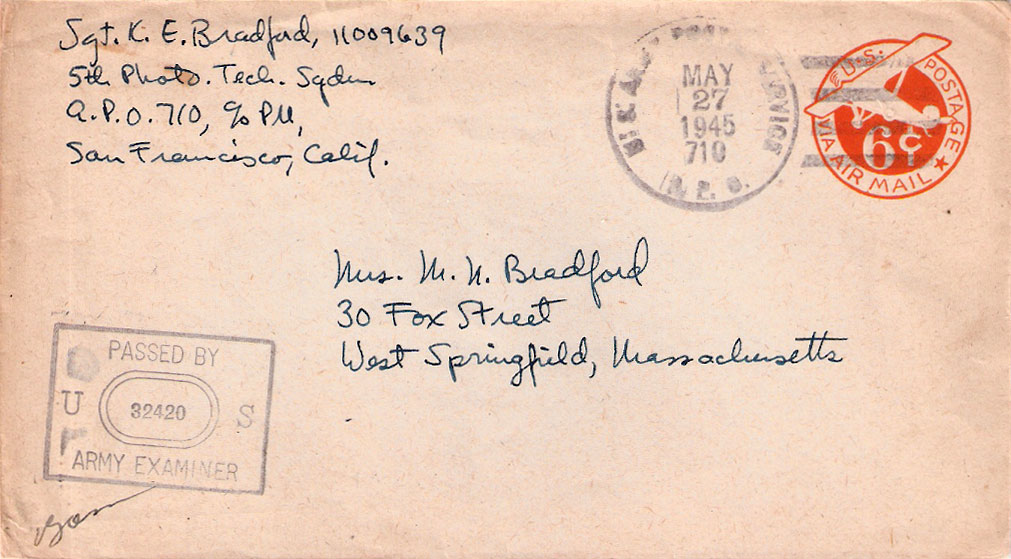 Sgt. K. E. Bradford, 11009639
5th Photo. Tech. Sqdn
A.P.O. 710, c/o PM,
San Francisco, Calif.
MAY
27
1945
710
U.S. POSTAGE
VIA AIR MAIL
6¢
Mrs. M. N. Bradford
30 Fox Street
West Springfield, Massachusetts
PASSED BY
U 32420 S
ARMY EXAMINER